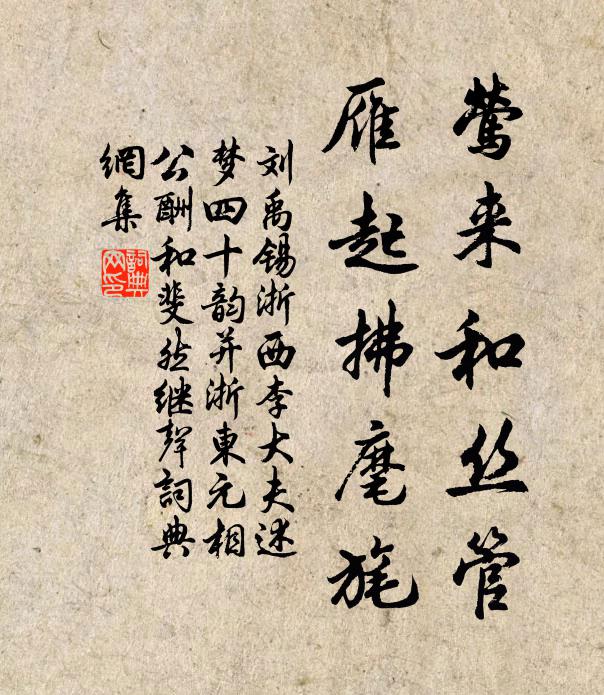 莺来和丝管
雁起拂麾旄
刘禹锡浙西李大夫述
梦四十韵并浙東元相
公酬和斐然继聲詞典
網集
詞典
网印